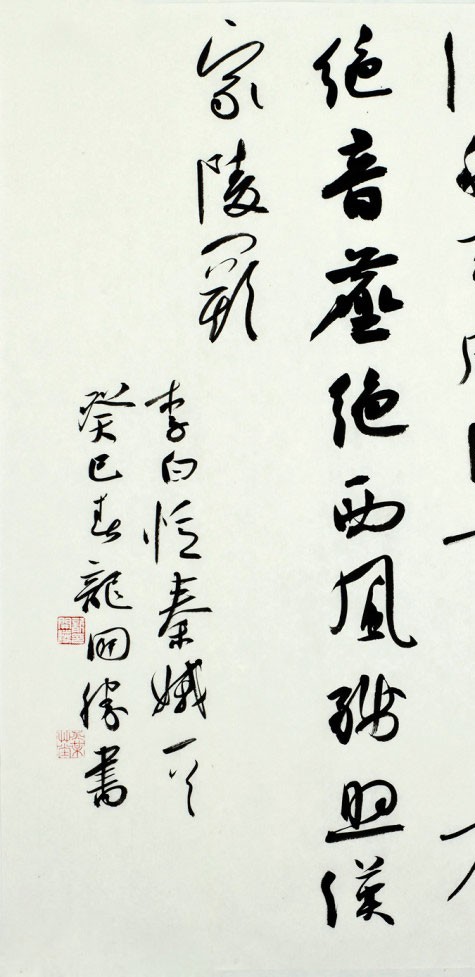 絶音塵絶西風殘照漢
家陵闕
李白憶秦娥一首
癸巳春龍開勝書